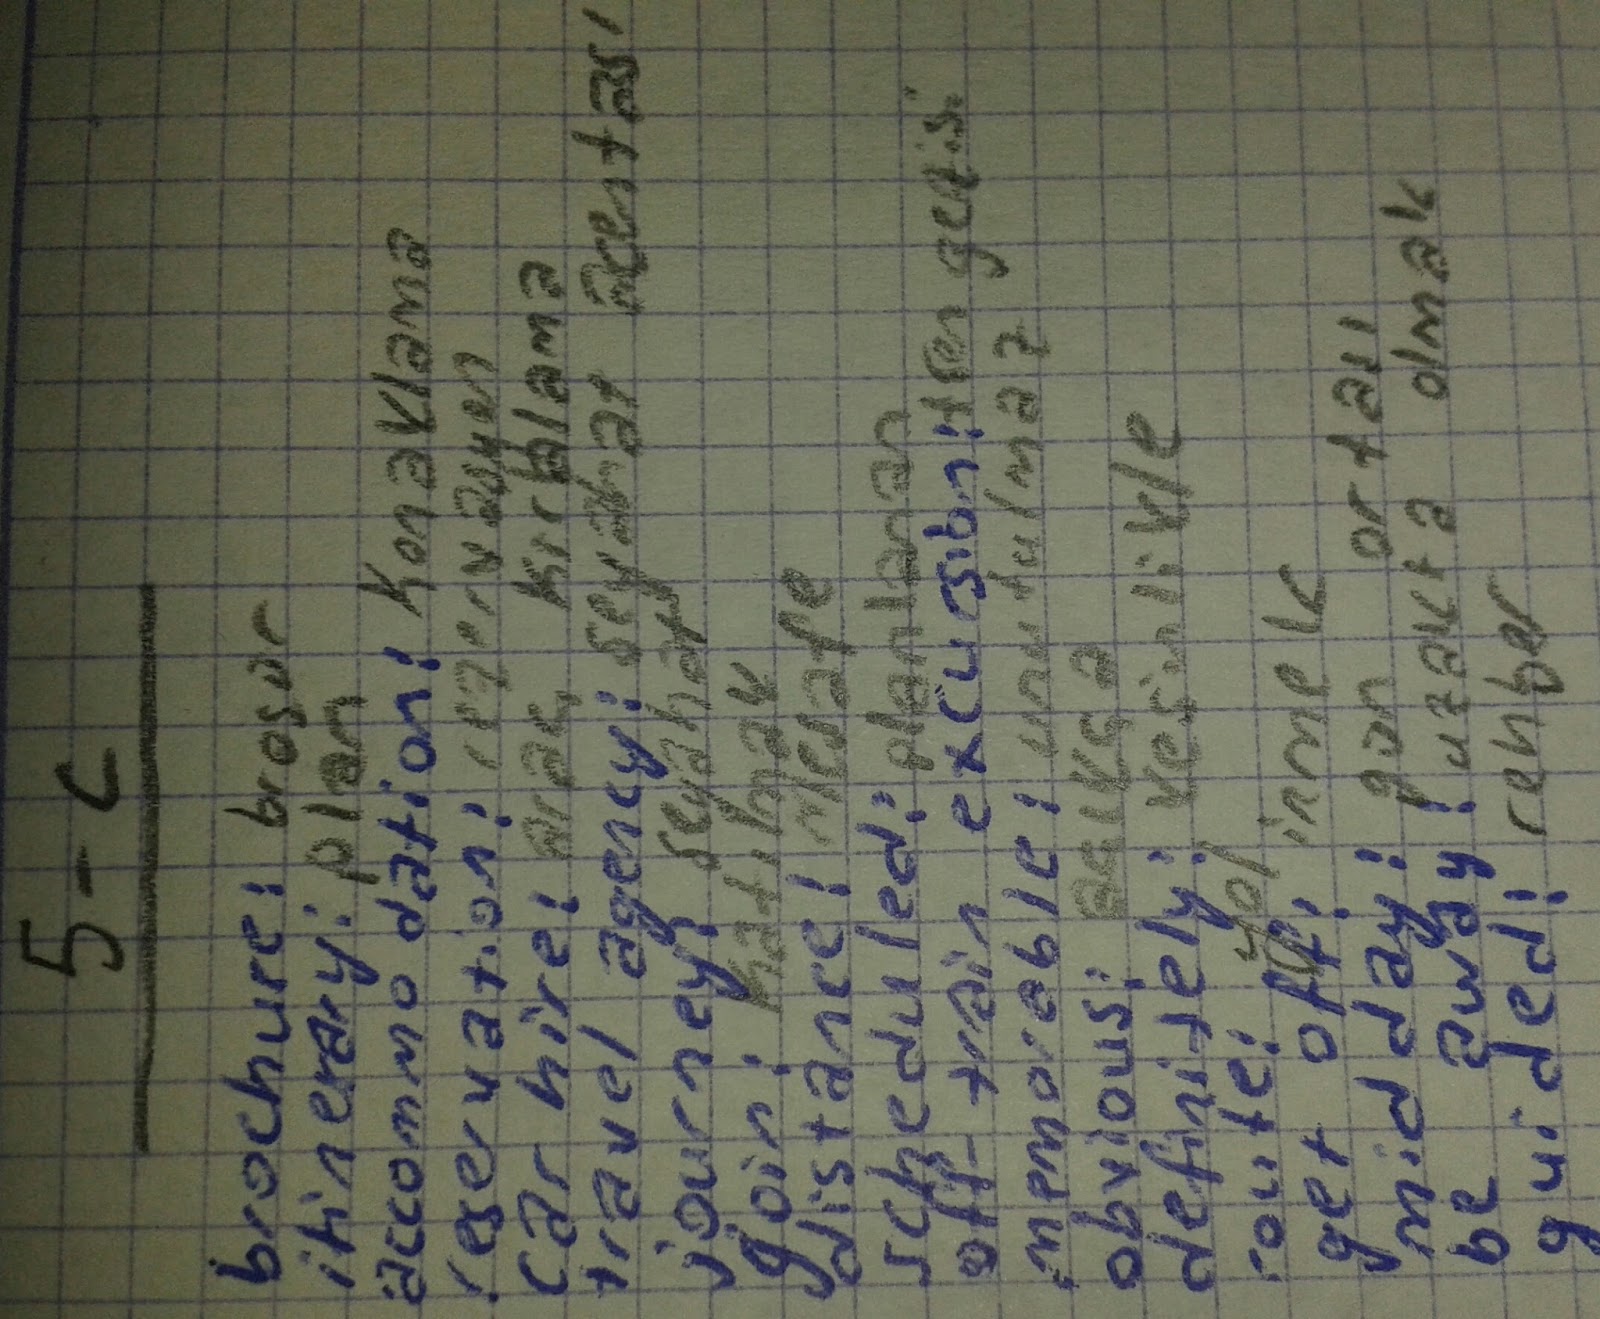 5-C
brochure: broşür
itinerary: plan
accommodation: Konaklama
reservation: rezervasyon
car hire: araç kiralama
travel agency: seyahat acentası
journey: seyahat
join: katılmak
distance: mesafe
scheduled: planlanan
off-train excursion: tren gezisi
memorable: unutulmaz
obvious: açıkça
definitely: kesinlikle
route: yol
get off: inmek
mid day: gün ortası
be away: uzakta olmak
guided: rehber